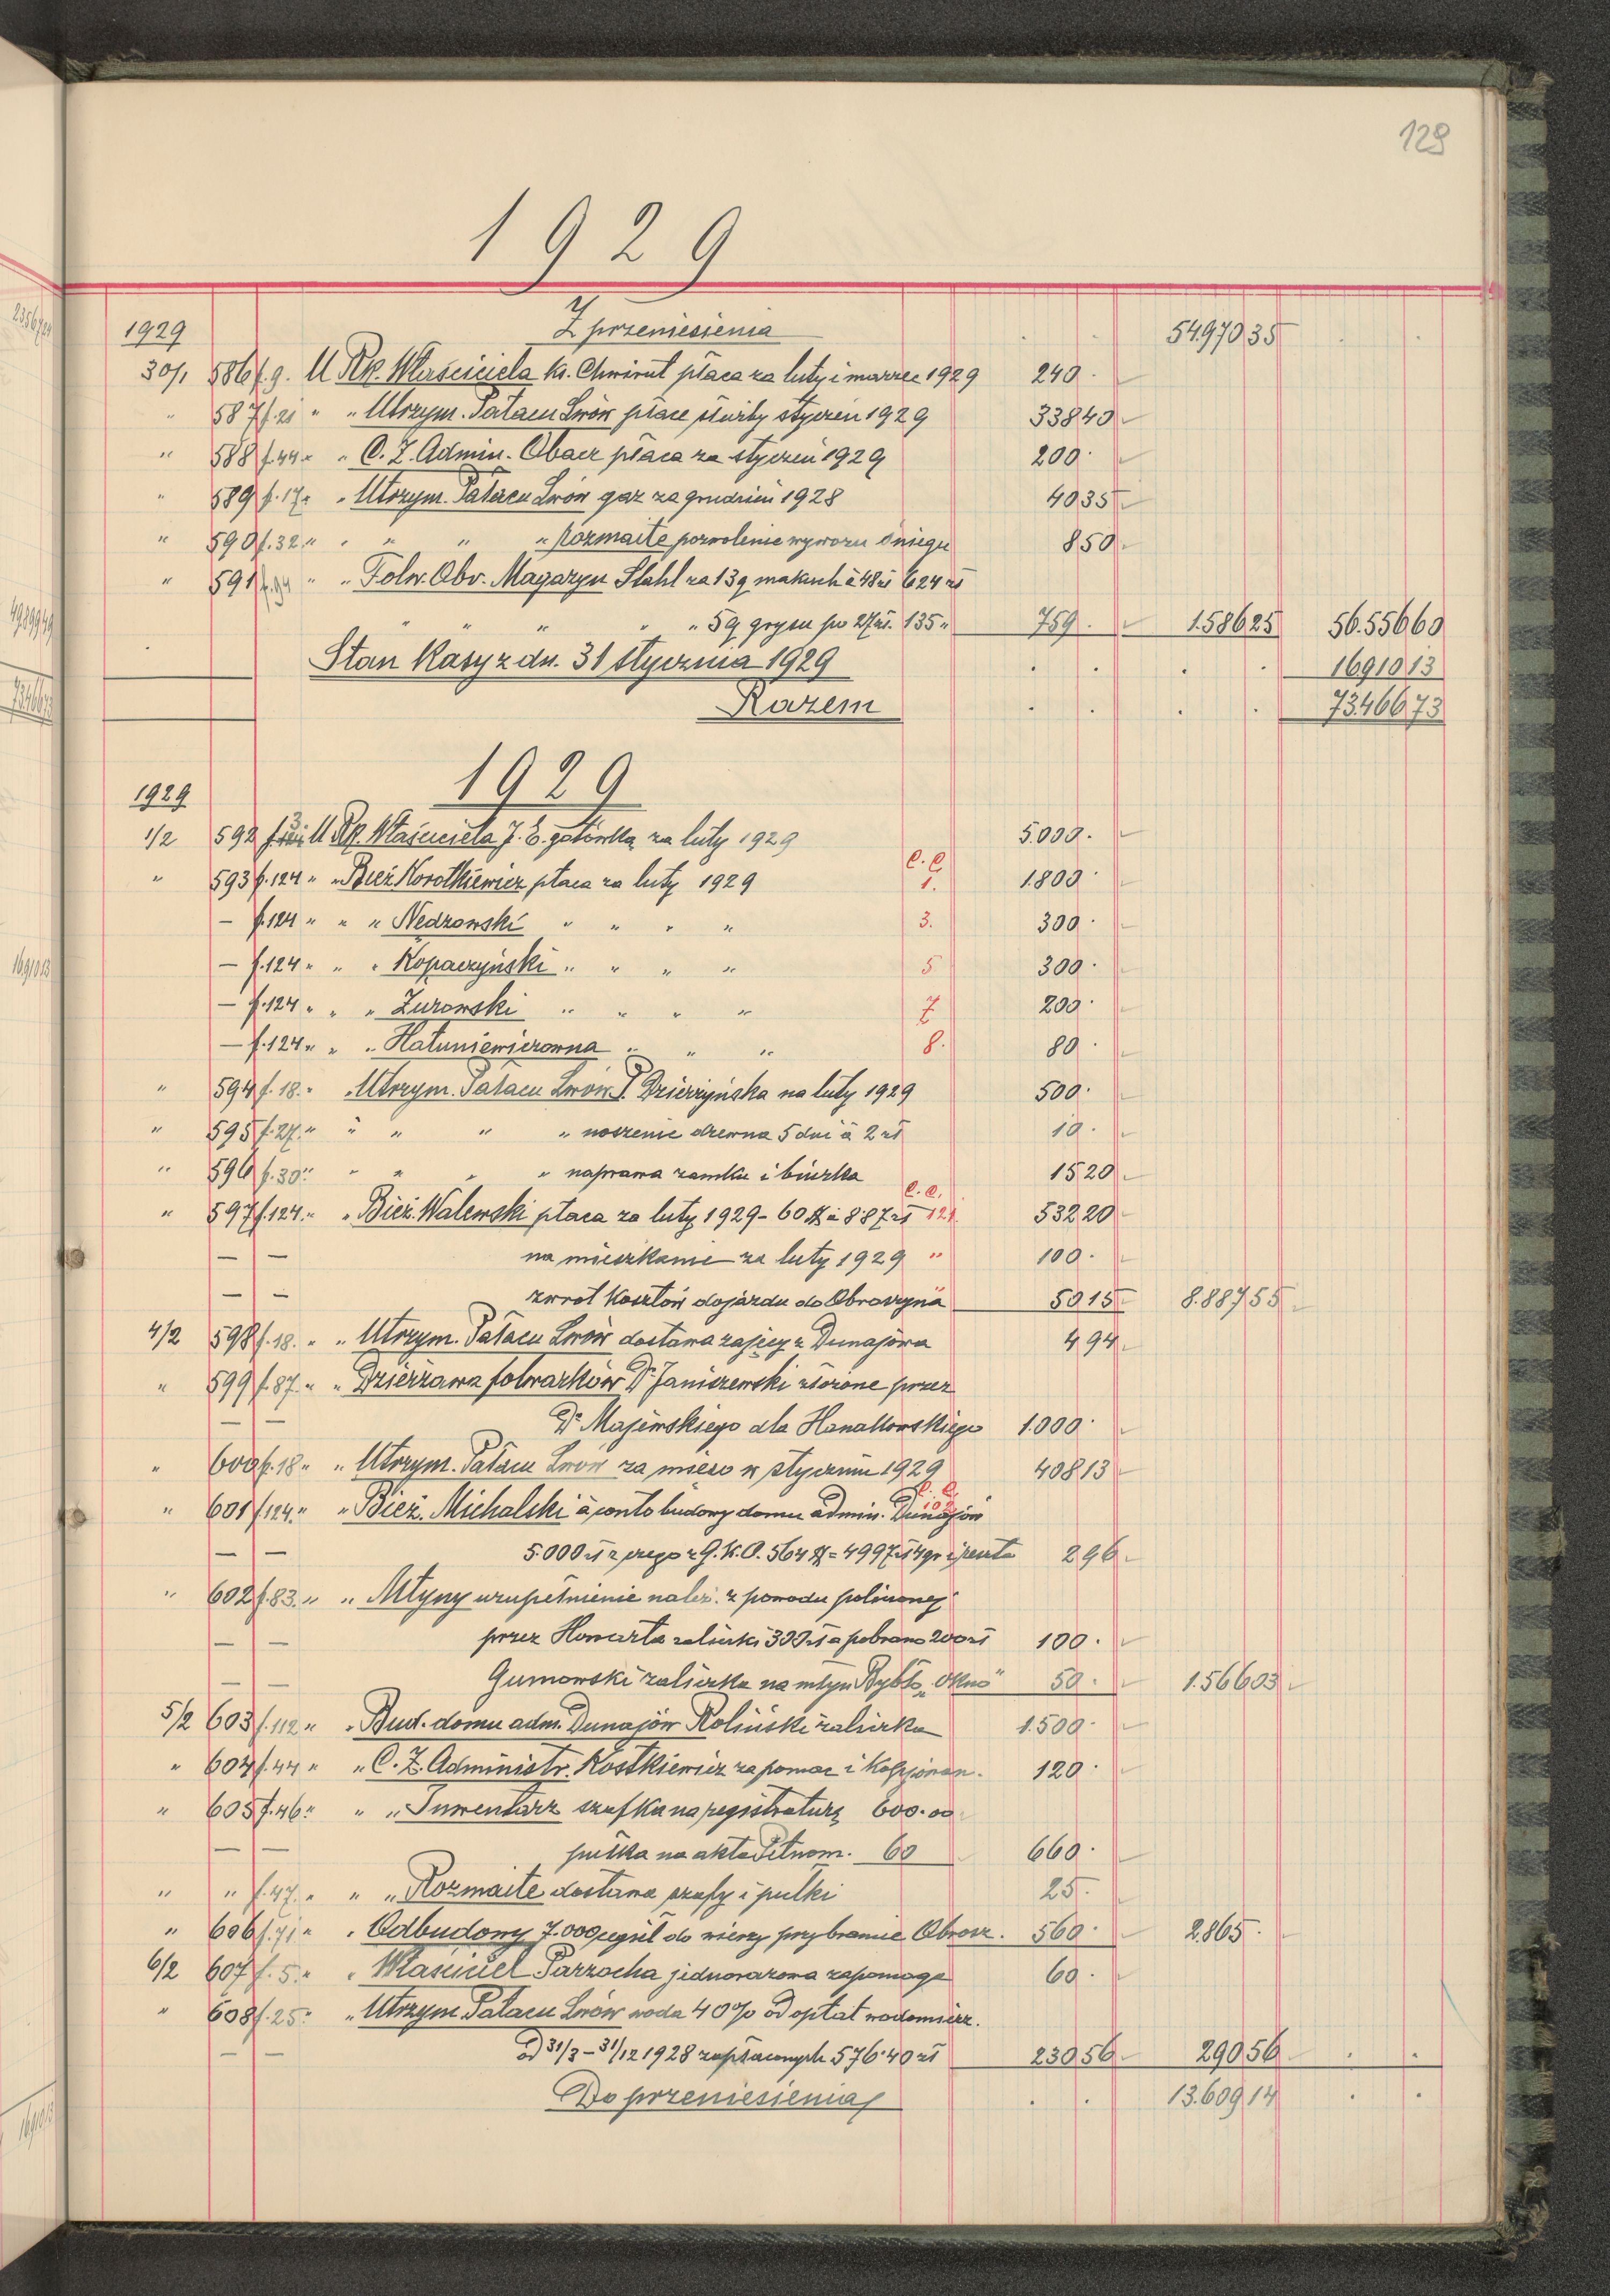 129
1929
1929 Z przeniesienia 54.970 35
30/1 586 f. 9. U Rk. Właściciela ks. Chwirut płaca za luty i marzec 1929 240 ·
" 587 f. 21 " " Utrzym. Pałacu Lwów płace służby styczeń 1929 338 40
" 588 f. 44 " " C. Z. Admin. Obacz płaca za styczeń 1929 200 ·
" 589 f. 17 " " Utrzym. Pałacu Lwów gaz za grudzień 1928 40 35
" 590 f. 32 " " " " " Rozmaite pozwolenie wywozu śniegu 8 50
" 591 f. 94 " " Folw. Obr. Magazyn Stahl za 13 q makuch à 48 zł 624 zł
" " " " " 5 q grysu po 27 zł. 135 " 759 · 1.586 25 56.556 60
Stan Kasy z dn. 31 stycznia 1929 16910 13
Razem 73.466 73
1929
1929
1/2 592 f. U Rk. Właściciela J. E. gotówka za luty 1929 5.000 ·
" 593 f. 124 " " Bież. Korotkiewicz płaca za luty 1929 C. C. 1. 1.800 ·
— f. 124 " " " Nedzowski " " " " 3. 300 ·
— f. 124 " " " Kopaczyński " " " " 5 300 ·
— f. 124 " " " Żurowski " " " " 7 200 ·
— f. 124 " " " Hatuniewiczowna " " " 8. 80 ·
" 594 f. 18. " " Utrzym. Pałacu Lwów P. Dzierżyńska na luty 1929 500 ·
" 595 f. 27. " " " " " noszenie drzewna 5 dni à 2 zł 10 ·
" 596 f. 30 " " " " " naprawa zamku i biurka 15 20
" 597 f. 124. " " Bież. Walewski płaca za luty 1929 - 60 $ à 8.87 zł C. C. 121. 532 20
— — na mieszkanie za luty 1929 " 100 ·
— — zwrot kosztów dojazdu do Obroszyna " 50 15 8.887 55
4/2 598 f. 18. " " Utrzym. Pałacu Lwów dostawa zajęcy z Dunajowa 4 94
" 599 f. 87. " " Dzierżawa folwarków Dr Janiszewski złożone przez
— — Dr Majewskiego dla Hanakowskiego 1.000 ·
" 600 f. 18 " " Utrzym. Pałacu Lwów za mięso w styczniu 1929 408 13
" 601 f. 124. " " Bież. Michalski à conto budowy domu admin. Dunajów C. C.
— — 5.000 zł z czego z G. K. O. 564 $ = 4997 zł 4 gr i reszta 2 96
" 602 f. 83. " " Młyny uzupełnienie należ. z powodu policzonej
— — przez Howarta zaliczki 300 zł a pobrano 200 zł 100 ·
— — Gumowski zaliczka na młyn Rybło „Okno" 50 · 1.566 03
5/2 603 f. 112 " " Bud. domu adm. Dunajów Roliński zaliczka 1.500 ·
" 604 f. 44 " " C. Z. Administr. Kostkiewicz za pomoc i kopjowan. 120 ·
" 605 f. 46 " " " Inwentarz szafka na registraturę 600.00
— — półka na akta Pełnom. 60 660 ·
" " f. 47. " " " Rozmaite dostawa szafy i pułki 25 ·
" 606 f. 71 " " Odbudowy 7.000 cegieł do wieży przybramie Obrosz. 560 · 2.865 ·
6/2 607 f. 5. " " Właściciel Parzocha jednorazowa zapomoga 60 ·
" 608 f. 25. " Utrzym. Pałacu Lwów woda 40% od opłat wodomierz.
— — od 31/3 – 31/12 1928 zapłaconych 576.40 zł 230 56 290 56
Do przeniesienia 13.609 14